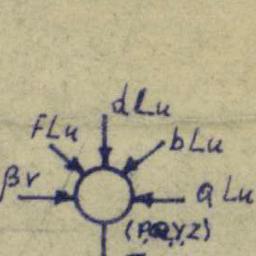 dLu
fLu
bLu
βr
aLu
(P,Q,Y,Z)